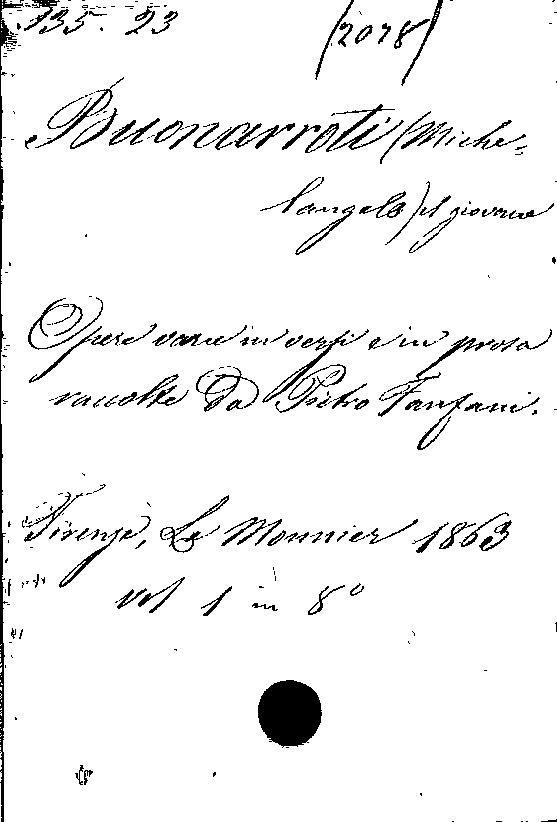 135. 23 (2028)
Buonarroti (Miche-
langelo) il giovane
Opere varie in versi e in prosa
raccolte da Pietro Fanfani.
Firenze, Le Monnier 1863
vol 1 in 8º